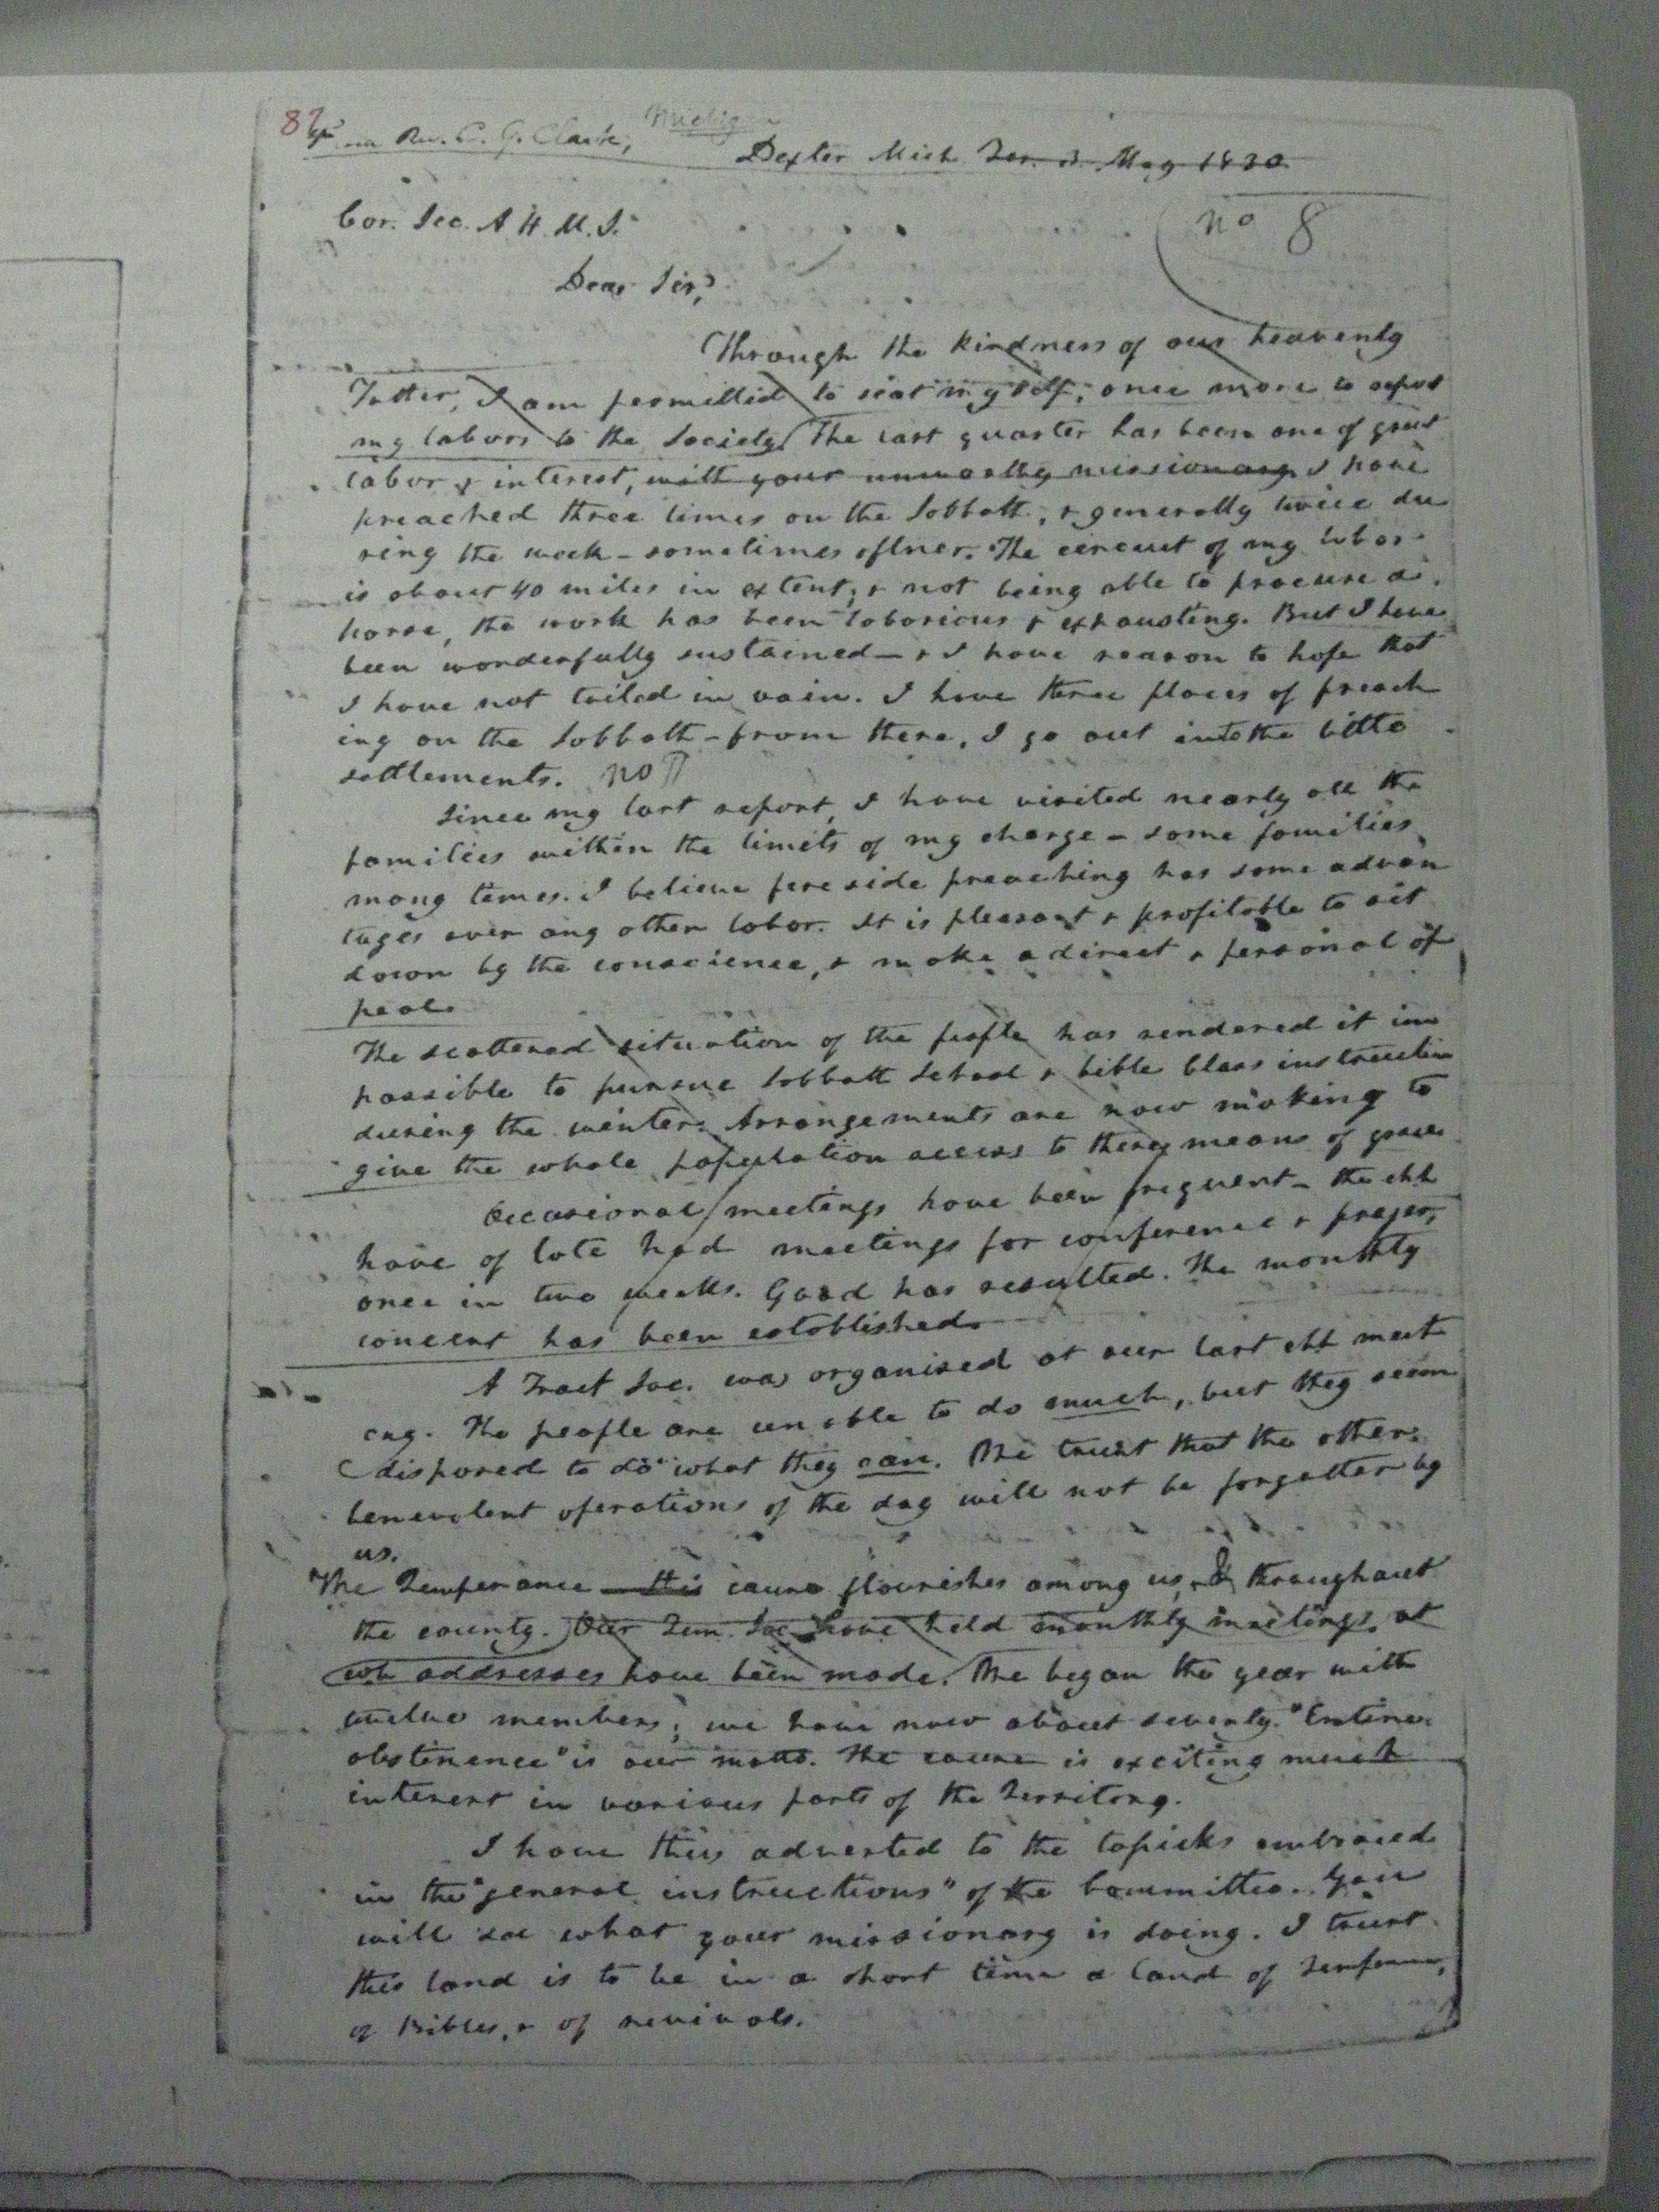 Rev. C. G. Clark, Michigan
Dexter Mich Ter. 3. May 1830
Cor. Sec. A. H. M. S.
no 8
Dear Sir,
Through the kindness of our heavenly
Father, I am permitted to seat myself, once more to report
my labors to the Society. The last quarter has been one of great
labor & interest, with your unworthy missionary. I have
preached three times on the Sabbath, & generally twice du
ring the week - sometimes oftner. The circuit of my labor
is about 40 miles in extent, & not being able to procure a
horse, the work has been laborious & exhausting. But I have
been wonderfully sustained - & I have reason to hope that
I have not toiled in vain. I have three places of preach
ing on the Sabbath - from these, I go out into the little
settlements. no ¶
Since my last report, I have visited nearly all the
families within the limits of my charge - some families
many times. I believe fire side preaching has some advan
tages over any other labor. It is pleasant & profitable to sit
down by the conscience, & make a direct & personal ap
peal.
The scattered situation of the people has rendered it im
possible to pursue Sabbath School & bible Class instruction
during the winter. Arrangements are now making to
give the whole population access to these means of grace
Occasional meetings have been frequent - the chh
have of late had meetings for conference & prayer,
once in two weeks. Good has resulted. The monthly
concert has been established.
A Tract Soc. was organised at our last chh meet
ing. The people are unable to do much, but they seem
disposed to do what they can. We trust that the other
benevolent operations of the day will not be forgotten by
us.
The Temperance this cause flourishes among us, & throughout
the county. Our Tem. Soc. have held monthly meetings, at
wh addresses have been made. We began the year with
twelve members; we have now about seventy. "Entire
abstinence" is our motto. The cause is exciting much
interest in various parts of the Territory.
I have thus adverted to the topicks embraced
in the "general instructions" of the Committee. You
will see what your missionary is doing. I trust
this land is to be in a short time a land of Temperance,
of Bibles, & of revivals.